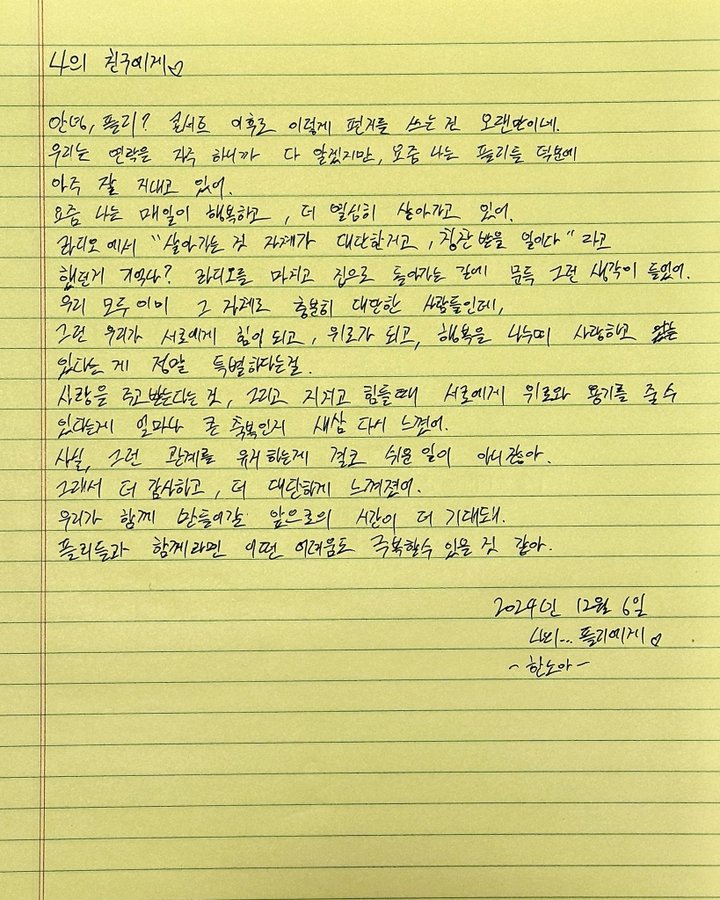 나의 친구에게♡
안녕, 플리? 콘서트 이후로 이렇게 편지를 쓰는 건 오랜만이네.
우리는 연락을 자주 하니까 다 알겠지만, 요즘 나는 플리들 덕분에
아주 잘 지내고 있어.
요즘 나는 매일이 행복하고, 더 열심히 살아가고 있어.
라디오에서 "살아가는 것 자체가 대단한거고, 칭찬받을 일이다" 라고
했던거 기억나? 라디오를 마치고 집으로 돌아가는 길에 문득 그런 생각이 들었어.
우리 모두 이미 그 자체로 충분히 대단한 사람들인데,
그런 우리가 서로에게 힘이 되고, 위로가 되고, 행복을 나누며 사랑하고
있다는 게 정말 특별하다는걸.
사랑을 주고받는다는 것, 그리고 지치고 힘들때 서로에게 위로와 용기를 줄 수
있다는게 얼마나 큰 축복인지 새삼 다시 느꼈어.
사실, 그런 관계를 유지하는게 결코 쉬운 일이 아니잖아.
그래서 더 감사하고, 더 대단하게 느껴졌어.
우리가 함께 만들어갈 앞으로의 시간이 더 기대돼.
플리들과 함께라면 어떤 어려움도 극복할수 있을 것 같아.
2024년 12월 6일
나의... 플리에게♡
-한노아-